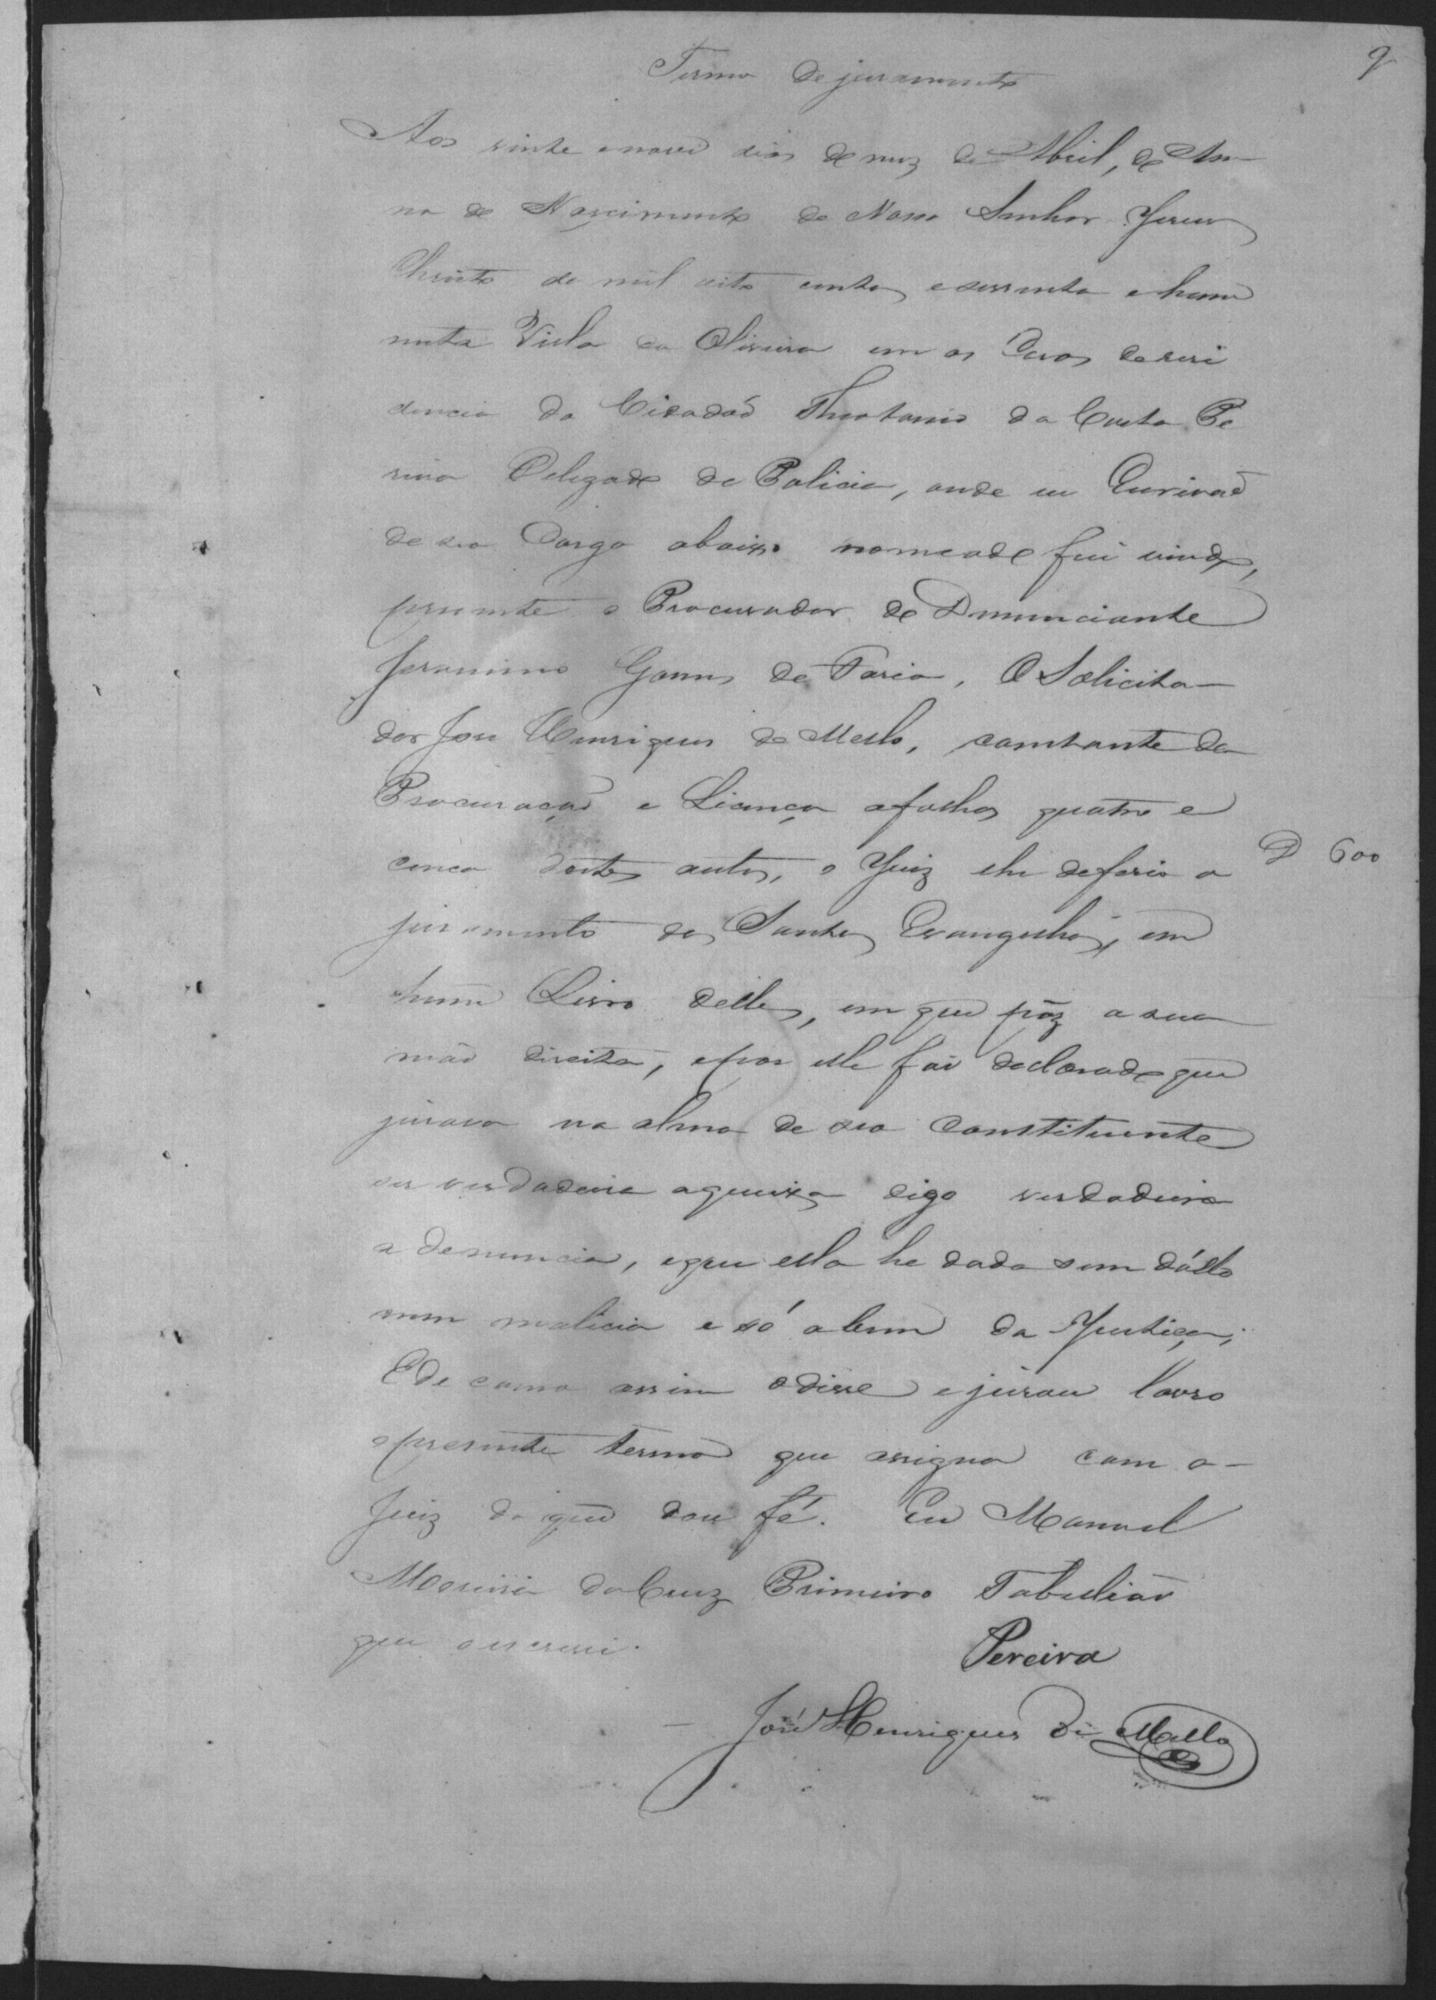 9
Termo de juramento
Aos vinte e nove dias do mez de Abril, do An-
no do Nascimento de Nosso Senhor Jesus
Christo de mil oito centos e sessenta e hum
nesta Villa da Oliveira em as Casas de resi
dencia do Cidadaõ Theotonio da Costa Pe
reira Delegado de Policia, onde eu Escrivaõ
de seo Cargo abaixo nomeado fui vindo,
presente o Procurador do Denunciante
Jeronimo Gomes de Faria, O Solicita-
dor Jose Henriques de Mello, constante da
Procuraçaõ e Licença a folhas quatro e
cinco destes autos, o Juiz lhe deferio o
D 600
juramento dos Santos Evangelhos, em
hum Livro delles, em que pôz a sua
mão direita, e por elle foi declarado que
jurava na alma de seo Constituinte
ser verdadeira a queixa digo verdadeira
a denuncia, e que ella he dada sem dóllo
nem malicia e só a bem da Justiça;
E de como assim o disse e jurou lavro
o presente termo que assigna com o-
Juiz do que dou fé. Eu Manoel
Moreira da Cruz Primeiro Tabelião
que o escrevi.
Pereira
José Henriques de Mello